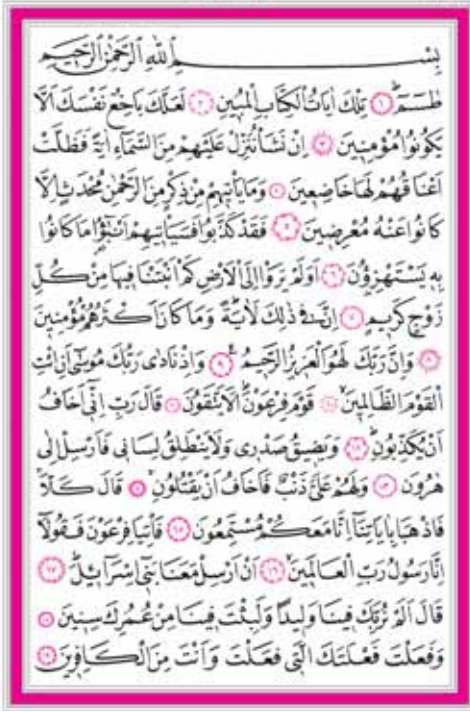 بِسْــــــمِ اللهِ الرَّحْمٰنِ الرَّحِيمِ
طٰسٓمٓ ﴿١﴾ تِلْكَ اٰيَاتُ الْكِتَابِ الْمُبِينِ ﴿٢﴾ لَعَلَّكَ بَاخِعٌ نَفْسَكَ اَلَّا
يَكُونُوا مُؤْمِنِينَ ﴿٣﴾ اِنْ نَشَأْ نُنَزِّلْ عَلَيْهِمْ مِنَ السَّمَٓاءِ اٰيَةً فَظَلَّتْ
اَعْنَاقُهُمْ لَهَا خَاضِعِينَ ﴿٤﴾ وَمَا يَأْتِيهِمْ مِنْ ذِكْرٍ مِنَ الرَّحْمٰنِ مُحْدَثٍ اِلَّا
كَانُوا عَنْهُ مُعْرِضِينَ ﴿٥﴾ فَقَدْ كَذَّبُوا فَسَيَأْتِيهِمْ اَنْبٰٓؤُ۬ا مَا كَانُوا
بِهِ يَسْتَهْزِؤُ۫نَ ﴿٦﴾ اَوَلَمْ يَرَوْا اِلَى الْاَرْضِ كَمْ اَنْبَتْنَا فِيهَا مِنْ كُلِّ
زَوْجٍ كَرِيمٍ ﴿٧﴾ اِنَّ فِي ذٰلِكَ لَاٰيَةً وَمَا كَانَ اَكْثَرُهُمْ مُؤْمِنِينَ
﴿٨﴾ وَاِنَّ رَبَّكَ لَهُوَ الْعَزِيزُ الرَّحِيمُ ﴿٩﴾ وَاِذْ نَادٰى رَبُّكَ مُوسٰٓى اَنِ ائْتِ
الْقَوْمَ الظَّالِمِينَ ﴿١٠﴾ قَوْمَ فِرْعَوْنَ اَلَا يَتَّقُونَ ﴿١١﴾ قَالَ رَبِّ اِنِّٓي اَخَافُ
اَنْ يُكَذِّبُونِ ﴿١٢﴾ وَيَضِيقُ صَدْرِي وَلَا يَنْطَلِقُ لِسَانِي فَاَرْسِلْ اِلٰى
هٰرُونَ ﴿١٣﴾ وَلَهُمْ عَلَيَّ ذَنْبٌ فَاَخَافُ اَنْ يَقْتُلُونِ ﴿١٤﴾ قَالَ كَلَّا
فَاذْهَبَا بِاٰيَاتِنَٓا اِنَّا مَعَكُمْ مُسْتَمِعُونَ ﴿١٥﴾ فَأْتِيَا فِرْعَوْنَ فَقُولَٓا
اِنَّا رَسُولُ رَبِّ الْعَالَمِينَ ﴿١٦﴾ اَنْ اَرْسِلْ مَعَنَا بَنِٓي اِسْرَٓائِيلَ ﴿١٧﴾
قَالَ اَلَمْ نُرَبِّكَ فِينَا وَلِيدًا وَلَبِثْتَ فِينَا مِنْ عُمُرِكَ سِنِينَ ﴿١٨﴾
وَفَعَلْتَ فَعْلَتَكَ الَّتِي فَعَلْتَ وَاَنْتَ مِنَ الْكَافِرِينَ ﴿١٩﴾